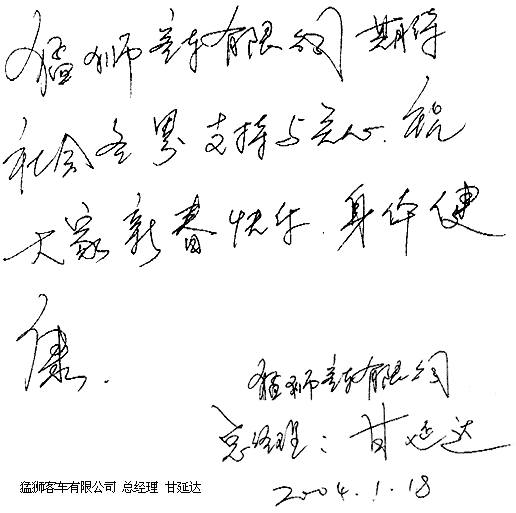 猛狮客车有限公司期待
社会各界支持与关心.祝
大家新春快乐.身体健
康.
猛狮客车有限公司
总经理：甘延达
2004.1.18
猛狮客车有限公司 总经理 甘延达